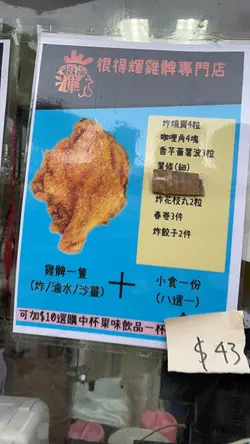 很得輝雞髀專門店
炸燒賣4粒
咖哩角4塊
香芋番薯波3粒
薯條(細)
炸花枝丸2粒
春卷3件
炸餃子2件
雞髀一隻
(炸/滷水/沙薑)
+
小食一份
(八選一)
可加$10選購中杯果味飲品一杯
$43